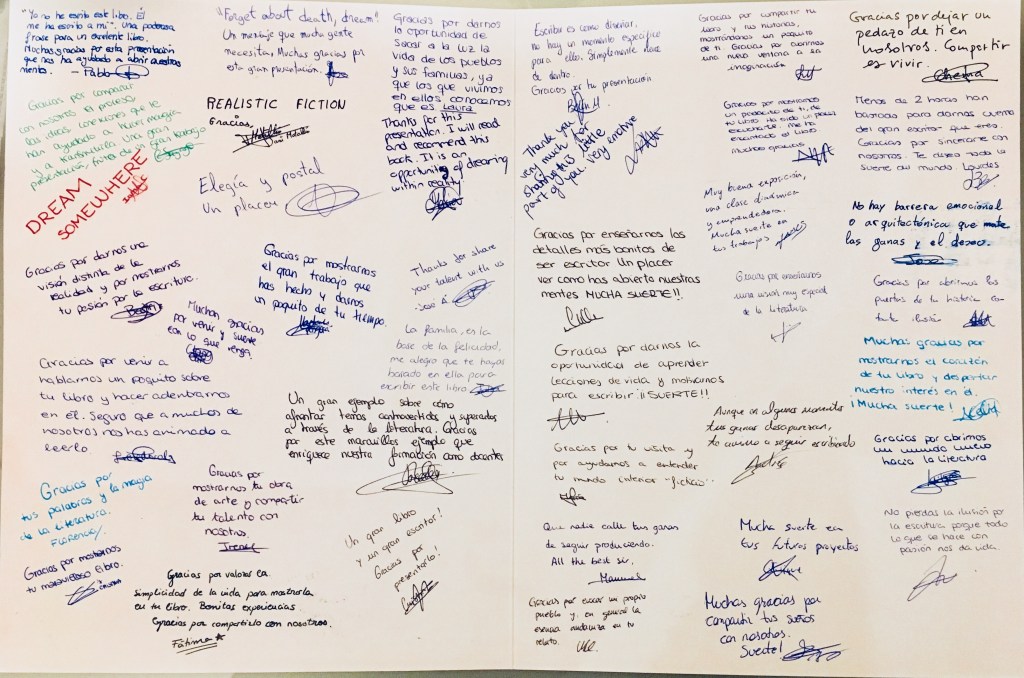 "Yo no he escrito este libro. El
me ha escrito a mí". Una poderosa
frase para un excelente libro.
Muchas gracias por esta presentación
que nos ha ayudado a abrir nuestras
mentes. - Pablo
Gracias por compartir
con nosotros el proceso
las ideas conexiones que te
han ayudado a hacer magia
y a transmitirla. Una gran
presentación, fruto de un gran trabajo
DREAM
SOMEWHERE
"Forget about death, dream!"
Un mensaje que mucha gente
necesita. Muchas gracias por
esta gran presentación.
REALISTIC FICTION
Gracias,
Elegía y postal
Un placer
Gracias por darnos
la oportunidad de
sacar a la luz la
vida de los pueblos
y sus familias, ya
que los que vivimos
en ellos, conocemos
que es
Thanks for this
presentation. I will read
and recommend this
book. It is an
opportunity of dreaming
within reality
Gracias por darnos una
visión distinta de la
realidad y por mostrarnos
tu pasión por la escritura.
Muchas gracias
por venir y suerte
con lo que venga.
Gracias por mostrarnos
el gran trabajo que
has hecho y darnos
un poquito de tu tiempo.
Thanks for share
your talent with us
La familia, es la
base de la felicidad,
me alegro que te hayas
basado en ella para
escribir este libro
Gracias por venir a
hablarnos un poquito sobre
tu libro y hacer adentrarnos
en él. Seguro que a muchos de
nosotros nos has animado a
leerlo
Un gran ejemplo sobre cómo
afrontar temas controvertidos y superarlos
a través de la literatura. Gracias
por este maravilloso ejemplo que
enriquece nuestra formación como docentes
Gracias por
tus palabras y la magia
de la literatura.
Florencio
Gracias por
mostrarnos tu obra
de arte y compartir
tu talento con
nosotros.
Irene
Un gran libro
y un gran escritor!
Gracias por
presentarlo!
Gracias por mostrarnos
tu maravilloso libro.
Cristina
Gracias por valorar la
simplicidad de la vida para mostrarla
en tu libro. Bonitas experiencias.
Gracias por compartirlo con nosotros.
Fátima
Escribir es como diseñar.
no hay un momento específico
para ello. Simplemente nace
de dentro.
Gracias por tu presentación.
Thank you
very much for
sharing us a little
part of you. Very enchive
Gracias por compartir tu
libro y tus historias,
mostrándonos un poquito
de ti. Gracias por abrirnos
una nueva ventana a la
imaginación
Gracias por dejar un
pedazo de ti en
nosotros. Compartir
es vivir.
Chema
Gracias por mostrarnos
un pedacito de ti, de
tu libro. Ha sido un placer
escucharte. me ha
encantado el libro
Muchas gracias
Menos de 2 horas han
bastado para darnos cuenta
del gran escritor que eres.
Gracias por sincerarte con
nosotros. Te deseo toda la
suerte del mundo. Lourdes
Muy buena exposición,
una clase dinámica
y emprendedora.
Mucha suerte en
tus trabajos
No hay barrera emocional
o arquitectónica que mate
las ganas y el deseo.
Jose
Gracias por enseñarnos los
detalles más bonitos de
ser escritor. Un placer
ver como has abierto nuestras
mentes MUCHA SUERTE!!
Gracias por enseñarnos
una visión muy especial
de la literatura
Gracias por abrirnos las
puertas de tu historia con
tanta ilusión
Gracias por darnos la
oportunidad de aprender
lecciones de vida y motivarnos
para escribir ¡¡SUERTE!!
Muchas gracias por
mostrarnos el corazón
de tu libro y despertar
nuestro interés en él.
¡Mucha suerte!
Aunque en algunos momentos
tus ganas desaparezcan,
te animo a seguir escribiendo
Gracias por tu visita y
por ayudarnos a entender
tu mundo interior-ficticio.
Gracias por abrirnos
un mundo nuevo
hacia la literatura
Que nadie calle tus ganas
de seguir produciendo.
All the best sir.
Manuel
Mucha suerte en
tus futuros proyectos
No pierdas la ilusión por
la escritura porque todo
lo que se hace con
pasión nos da vida.
Gracias por evocar un propio
pueblo y, en general la
esencia andaluza en tu
relato.
Muchas gracias por
compartir tus sueños
con nosotros.
Suerte!